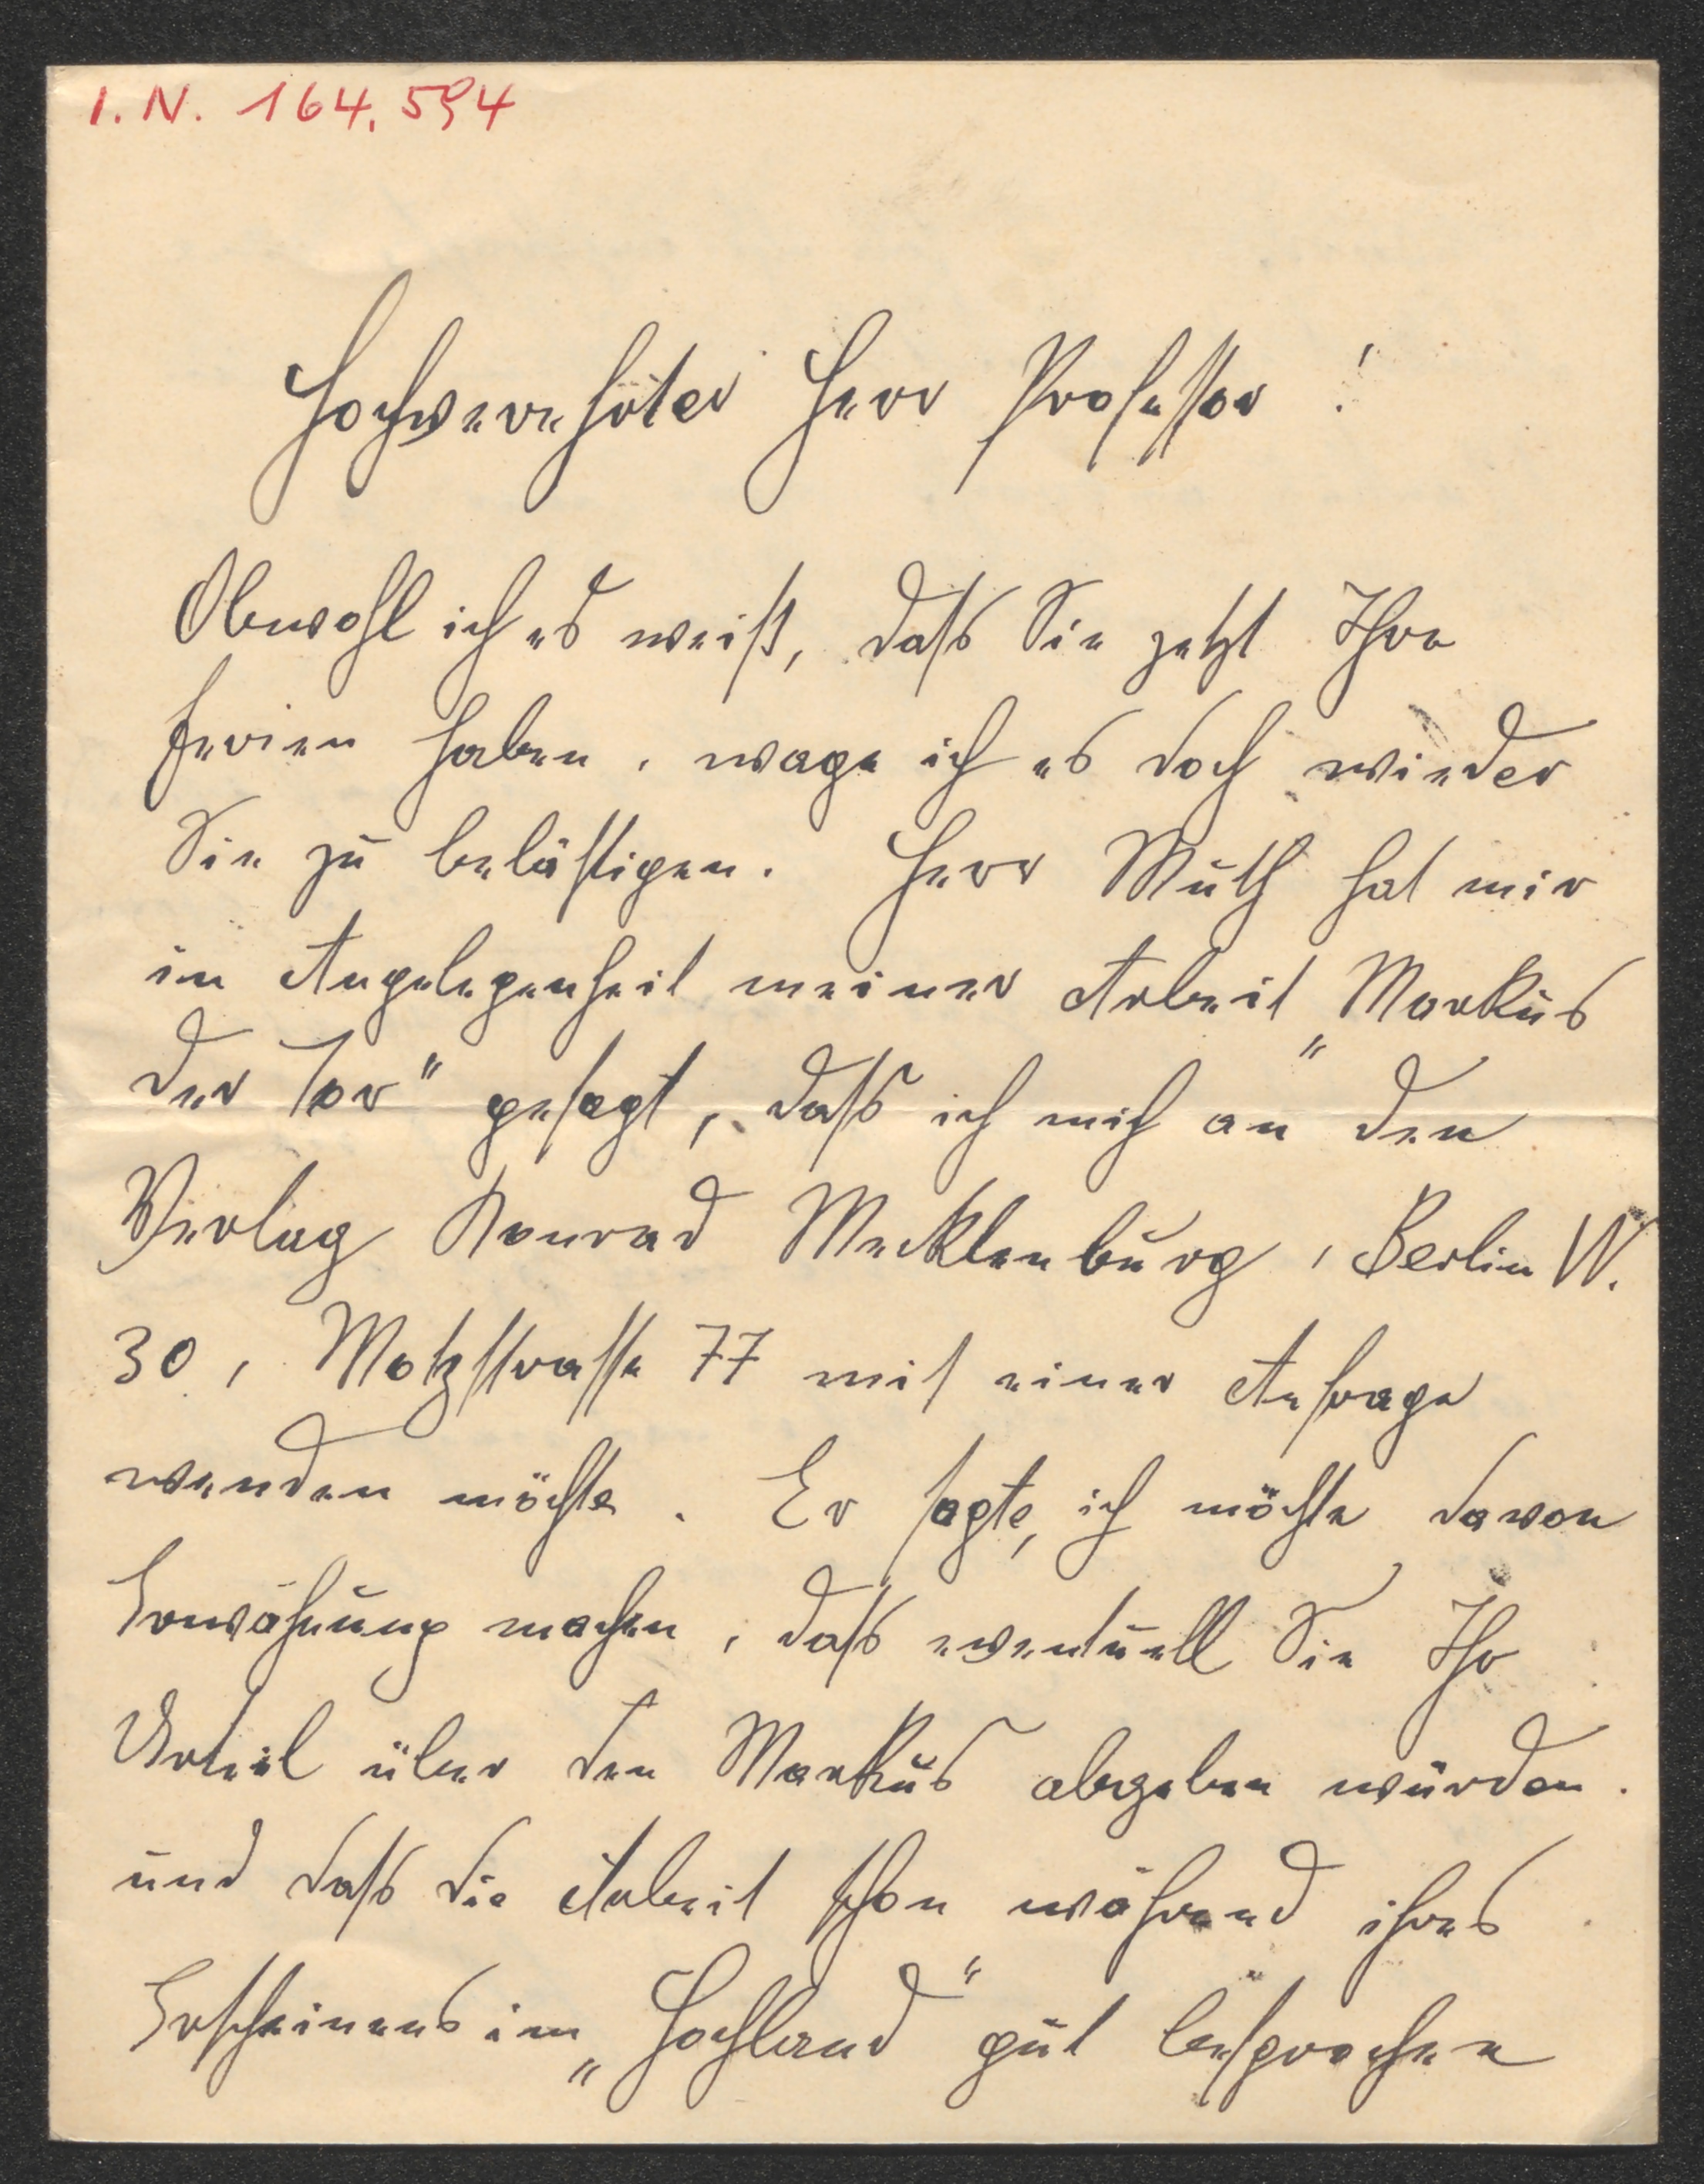 I.N. 164.594
Hochverehrter Herr Professor!
Obwohl ich es weiß, dass Sie jetzt Ihre
Ferien haben, wage ich es doch wieder
Sie zu belästigen. Herr Muth hat mir
in Angelegenheit meiner Arbeit „Markus
der Tor“ gesagt, dass ich mich an den
Verlag Konrad Mecklenburg, Berlin W.
30, Motzstrasse 77 mit einer Anfrage
wenden möchte. Er sagte, ich möchte davon
Erwähnung machen, dass eventuell Sie Ihr
Urteil über den Markus abgeben würden.
und dass die Arbeit schon während ihres
Erscheinens im „Hochland“ gut besprochen